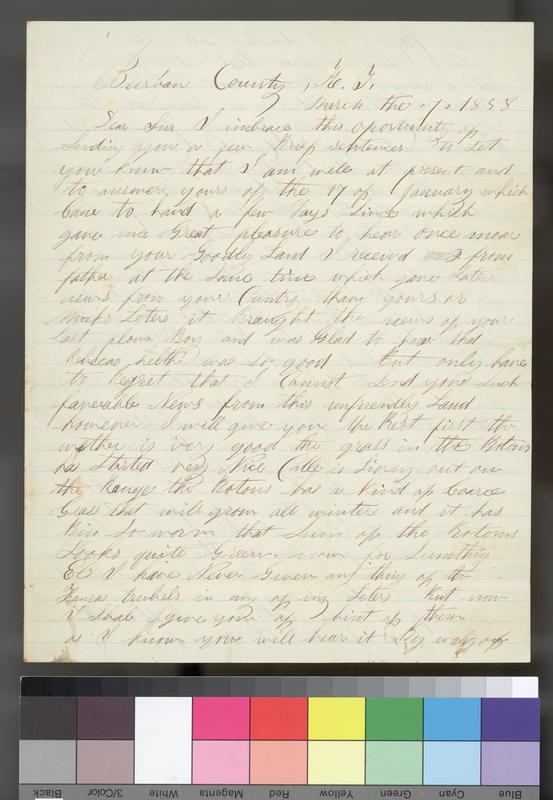 Burban County, K. T.
March the .7. 1858
Dear Sur I imbrace this oportunity of
Sending you a few Brief sentences to Let
you know that I am well at present and
to answer yours of the 17 of January which
Came to hand a few Days Since which
gave me Great pleasure to hear once moar
from your Goodly Land I receivd from
father at the Same time which gave Later
news from your Cuntry than yours or
Leters it Braught the news of your
Last Boy and was Glad to hear that
helth was so good But only have
to Regret that I Cannot Send you Such
faverable News from this unfriendly Land
however I will give you the Best first the
wether is very good the grass in the Botoms
has Started very Nice Catle is Living out on
the Range the Botoms has a Kind of Coarce
Grass that will grow all winter and it has
Bin So worm that Sum of the Botoms
Looks quite Green now for Sumthing
Els I have Never Given any thing of the
Kansas trubels in any of my Leters But now
i Shal give you a hint of them
as I know you will hear it By way of
Black
3/Color
White
Magenta
Red
Yellow
Green
Cyan
Blue